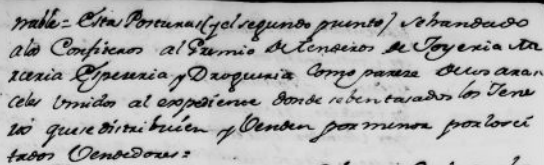 nable = Esta Posturas (y el segundo punto) se han dado
a los Confiteros al Gremio de tenderos de Joyeria Mar
ceria Especeria y Drogueria como parece de los aran
celes Unidos al expediente donde se ben tasados los Gene
ros que se distribuien y Venden por menor por los ci
tados Vendedores =